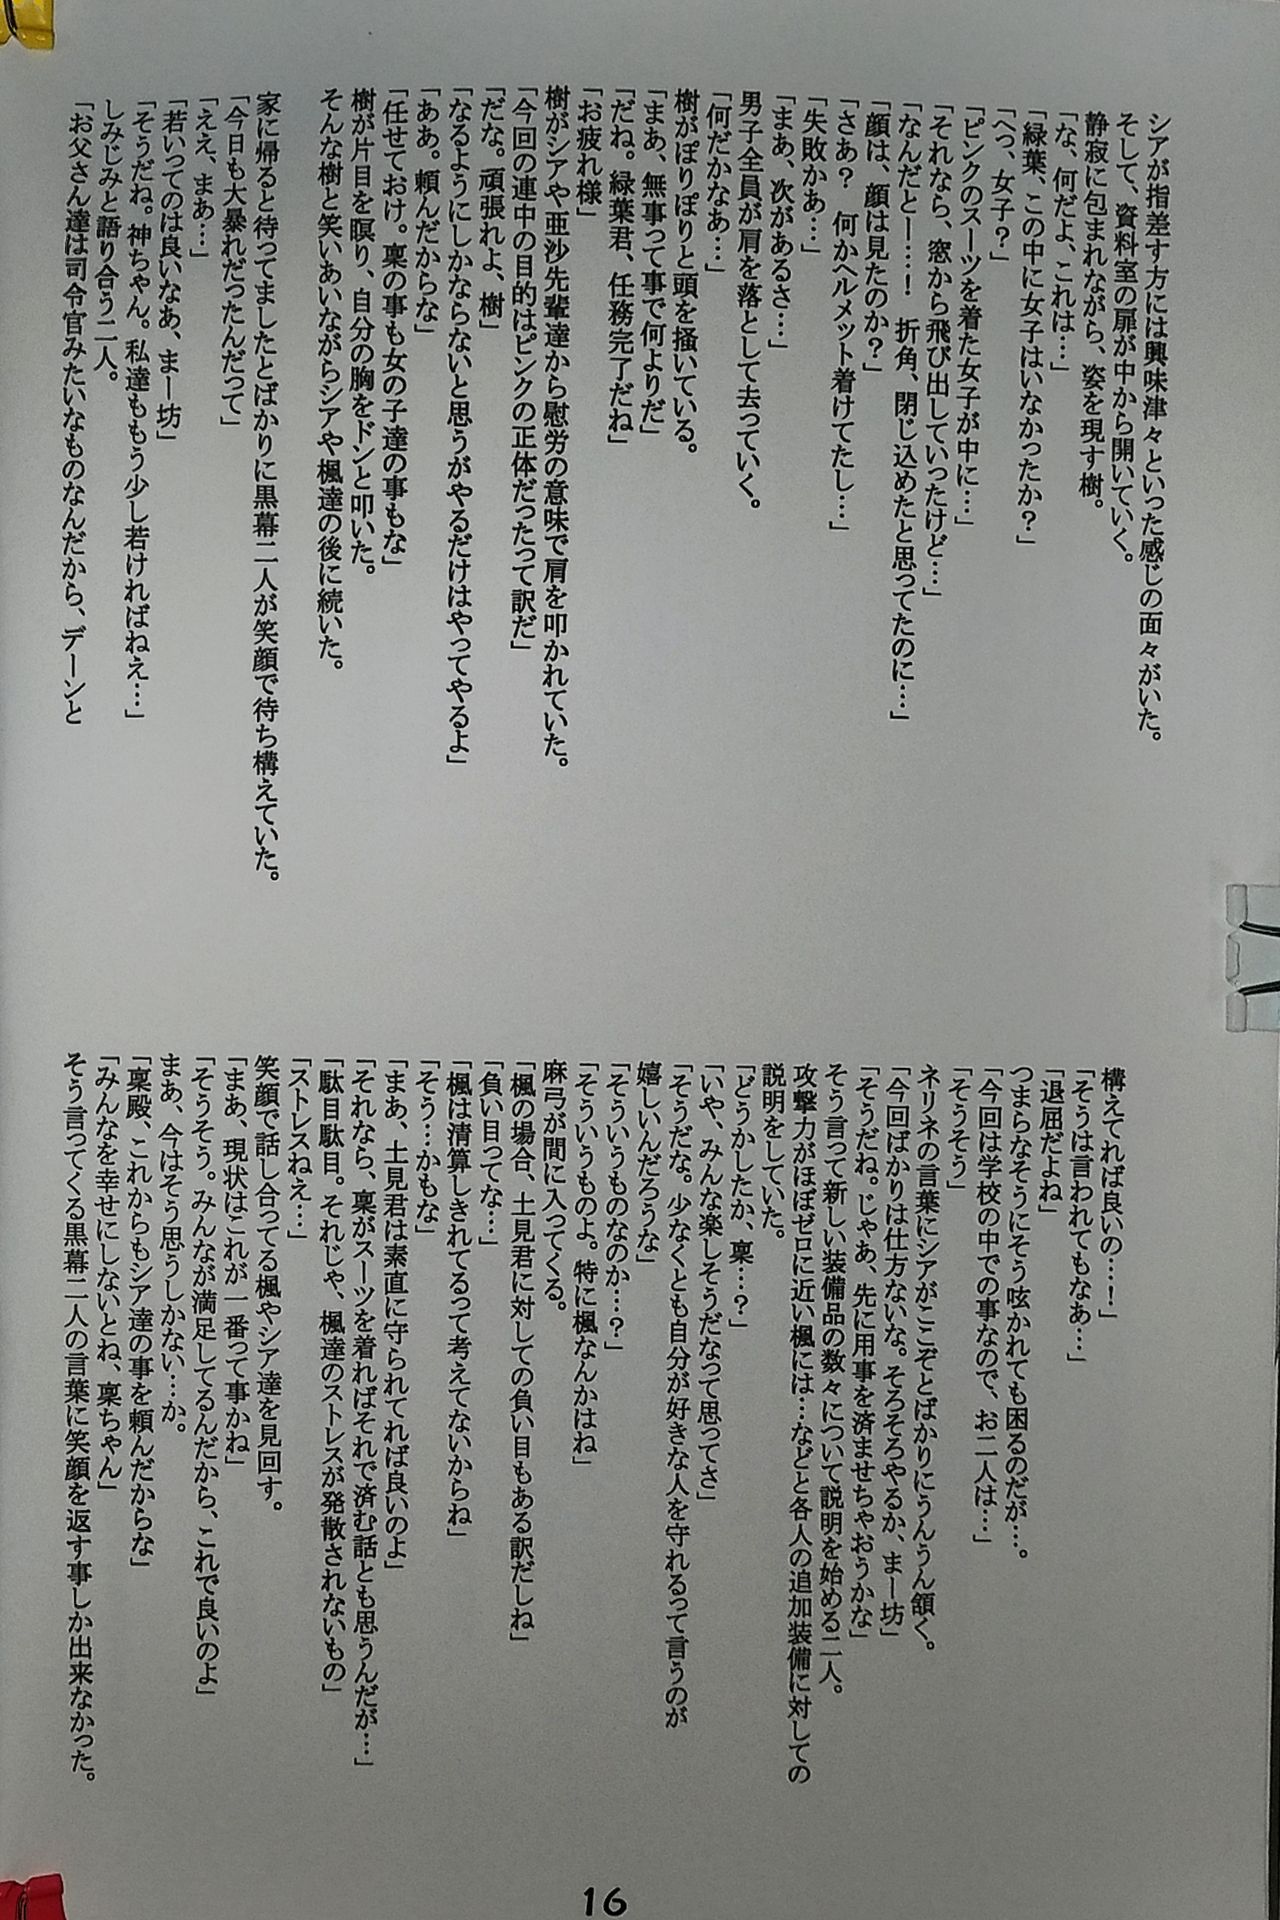 シアが指差す方には興味津々といった感じの面々がいた。
そして、資料室の扉が中から開いていく。
静寂に包まれながら、姿を現す樹。
「な、何だよ、これは…」
「緑葉、この中に女子はいなかったか？」
「へっ、女子？」
「ピンクのスーツを着た女子が中に…」
「それなら、窓から飛び出していったけど…」
「なんだとー…！　折角、閉じ込めたと思ってたのに…」
「顔は、顔は見たのか？」
「さあ？　何かヘルメット着けてたし…」
「失敗かあ…」
「まあ、次があるさ…」
男子全員が肩を落として去っていく。
「何だかなあ…」
樹がぽりぽりと頭を掻いている。
「まあ、無事って事で何よりだ」
「だね。緑葉君、任務完了だね」
「お疲れ様」
樹がシアや亜沙先輩達から慰労の意味で肩を叩かれていた。
「今回の連中の目的はピンクの正体だったって訳だ」
「だな。頑張れよ、樹」
「なるようにしかならないと思うがやるだけはやってやるよ」
「ああ。頼んだからな」
「任せておけ。稟の事も女の子達の事もな」
樹が片目を瞑り、自分の胸をドンと叩いた。
そんな樹と笑いあいながらシアや楓達の後に続いた。
家に帰ると待ってましたとばかりに黒幕二人が笑顔で待ち構えていた。
「今日も大暴れだったんだって」
「ええ、まあ…」
「若いってのは良いなあ、まー坊」
「そうだね。神ちゃん。私達ももう少し若ければねえ…」
しみじみと語り合う二人。
「お父さん達は司令官みたいなものなんだから、デーンと
構えてれば良いの…！」
「そうは言われてもなあ…」
「退屈だよね」
つまらなそうにそう呟かれても困るのだが…。
「今回は学校の中での事なので、お二人は…」
「そうそう」
ネリネの言葉にシアがここぞとばかりにうんうん頷く。
「今回ばかりは仕方ないな。そろそろやるか、まー坊」
「そうだね。じゃあ、先に用事を済ませちゃおうかな」
そう言って新しい装備品の数々について説明を始める二人。
攻撃力がほぼゼロに近い楓には…などと各人の追加装備に対しての
説明をしていた。
「どうかしたか、稟…？」
「いや、みんな楽しそうだなって思ってさ」
「そうだな。少なくとも自分が好きな人を守れるって言うのが
嬉しいんだろうな」
「そういうものなのか…？」
「そういうものよ。特に楓なんかはね」
麻弓が間に入ってくる。
「楓の場合、土見君に対しての負い目もある訳だしね」
「負い目ってな…」
「楓は清算しきれてるって考えてないからね」
「そう…かもな」
「まあ、土見君は素直に守られてれば良いのよ」
「それなら、稟がスーツを着ればそれで済む話とも思うんだが…」
「駄目駄目。それじゃ、楓達のストレスが発散されないもの」
「ストレスねえ…」
笑顔で話し合ってる楓やシア達を見回す。
「まあ、現状はこれが一番って事かね」
「そうそう。みんなが満足してるんだから、これで良いのよ」
まあ、今はそう思うしかない…か。
「稟殿、これからもシア達の事を頼んだからな」
「みんなを幸せにしないとね、稟ちゃん」
そう言ってくる黒幕二人の言葉に笑顔を返す事しか出来なかった。
16